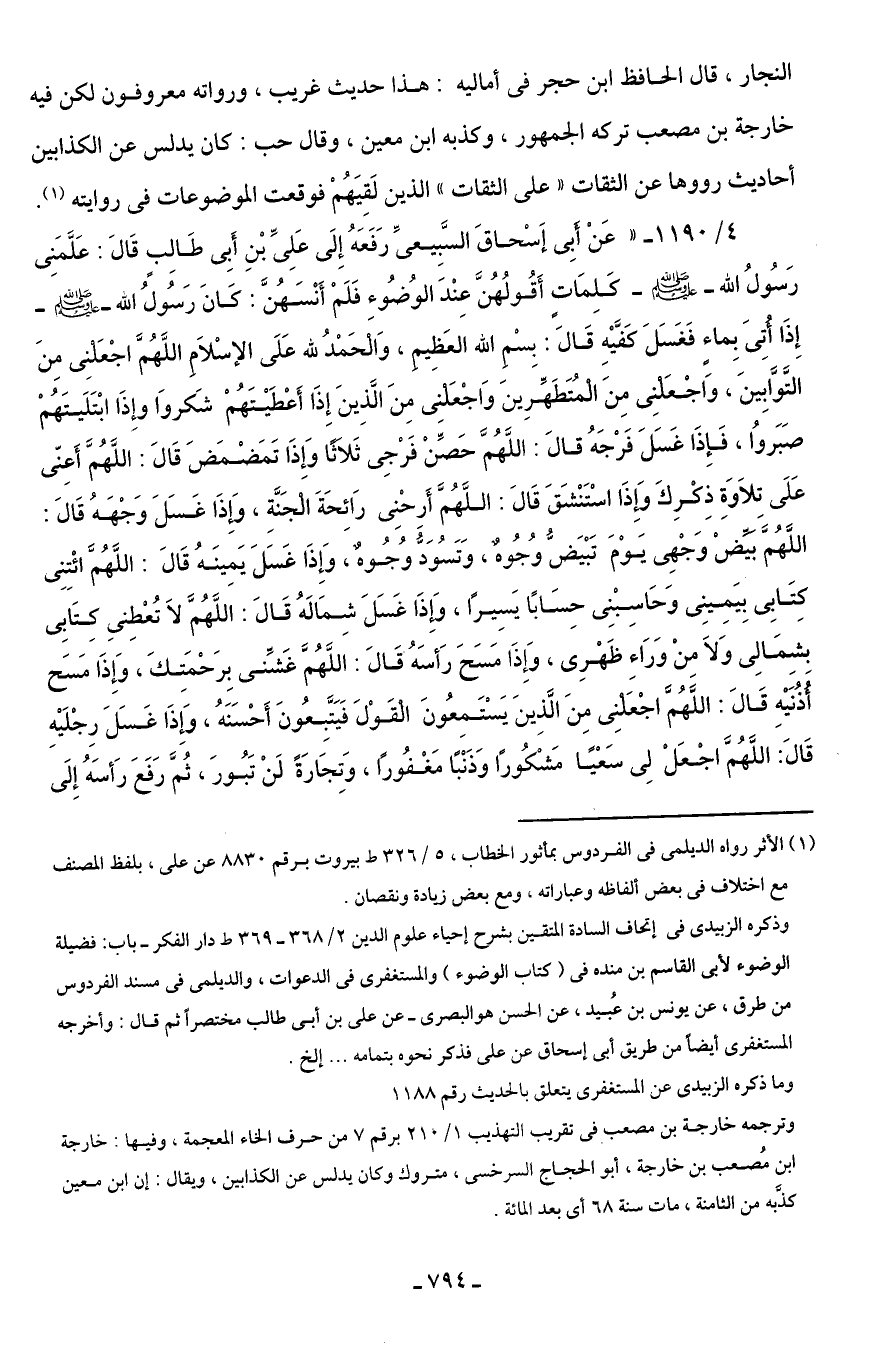 النجار ، قال الحافظ ابن حجر فى أماليه : هذا حديث غريب ، ورواته معروفون لكن فيه
خارجة بن مصعب تركه الجمهور ، وكذبه ابن معين ، وقال حب : كان يدلس عن الكذابين
أحاديث رووها عن الثقات « على الثقات » الذين لَقِيَهُمْ فوقعت الموضوعات فى روايته (١).
٤/ ١١٩٠ـ « عَنْ أَبِى إِسْحاقَ السَّبِيعىِّ رَفَعَهُ إِلَى عَلىِّ بْنِ أَبِى طَالِبٍ قَالَ : عَلَّمَنِى
رَسُولُ الله ـ ﷺ ـ كَلِمَاتٍ أَقُولُهُنَّ عِنْدَ الوُضُوءِ فَلَمْ أَنْسَهُنَّ : كَانَ رَسُولُ الله ـ ﷺ ـ
إِذَا أُتِىَ بِماءٍ فَغَسَلَ كَفَّيْهِ قَالَ : بِسْمِ الله العَظِيمِ ، وَالْحَمْدُ لله عَلَى الإِسْلَامِ اللَّهُمَّ اجْعَلْنِى مِنَ
التَّوَّابِينَ ، وَاجْعَلْنِى مِنَ الْمُتَطَهِّرِينَ وَاجْعَلْنِى مِنَ الَّذِينَ إِذَا أَعْطَيْتَهُمْ شَكَروا وإِذَا ابْتَلَيتَهُمْ
صَبَروُا ، فَإِذَا غَسَلَ فَرْجَهُ قالَ : اللَّهُمَّ حَصِّنْ فَرْجِى ثَلَاثًا وَإِذَا تَمَضْمَضَ قَالَ : اللَّهُمَّ أَعِنِّى
عَلَى تِلاَوَةِ ذِكْرِكَ وَإِذَا اسْتَنْشَقَ قَالَ : اللَّهُمَّ أَرِحْنِى رَائِحَةَ الْجَنَّةِ ، وَإِذَا غَسَلَ وَجْهَهُ قَالَ :
اللَّهُمَّ بَيِّضْ وَجْهِى يَوْمَ تَبْيَضُّ وُجُوهٌ ، وَتَسْوَدُّ وُجُوهٌ ، وَإِذَا غَسَلَ يَمِينَهُ قَالَ : اللَّهُمَّ ائْتِنِى
كِتَابِى بِيَمِينِى وَحَاسِبْنِى حِسَابًا يَسِيرًا ، وَإِذَا غَسَلَ شِمَالَهُ قَالَ : اللَّهُمَّ لاَ تُعْطِنِى كِتَابِى
بِشِمَالِى وَلَا مِنْ وَرَاءِ ظَهْرِى ، وَإِذَا مَسَحَ رَأسَهُ قَالَ : اللَّهُمَّ غَشِّنِى بِرَحْمَتِكَ ، وَإِذَا مَسَح
أُذُنَيْهِ قَالَ : اللَّهُمَّ اجْعَلْنِى مِنَ الَّذِينَ يَسْتَمِعُونَ الْقَوْلَ فَيَتَّبِعُونَ أَحْسَنَهُ ، وَإِذَا غَسَلَ رِجْلَيْهِ
قَالَ: اللَّهُمَّ اجْعَلْ لِى سَعْيًا مَشْكُورًا وَذَنْبًا مَغْفُورًا ، وَتِجَارَةً لَنْ تَبُورَ ، ثُمَّ رَفَعَ رَأسَهُ إِلَى
(١) الأثر رواه الديلمى فى الفردوس بمأثور الخطاب ، ٥ / ٣٢٦ ط بيروت برقم ٨٨٣٠ عن على ، بلفظ المصنف
مع اختلاف فى بعض ألفاظه وعباراته ، ومع بعض زيادة ونقصان .
وذكره الزبيدى فى إتحاف السادة المتقين بشرح إحياء علوم الدين ٢/ ٣٦٨ ـ ٣٦٩ ط دار الفكر ـ باب: فضيلة
الوضوء لأبى القاسم بن منده فى ( كتاب الوضوء ) والمستغفرى فى الدعوات ، والديلمى فى مسند الفردوس
من طرق ، عن يونس بن عُبيد ، عن الحسن هو البصرى ـ عن على بن أبى طالب مختصراً ثم قال : وأخرجه
المستغفرى أيضاً من طريق أبى إسحاق عن على فذكر نحوه بتمامه ... إلخ .
وما ذكره الزبيدى عن المستغفرى يتعلق بالحديث رقم ١١٨٨
وترجمه خارجة بن مصعب فى تقريب التهذيب ١/ ٢١٠ برقم ٧ من حرف الخاء المعجمة ، وفيها : خارجة
ابن مُصعب بن خارجة ، أبو الحجاج السرخسى ، متروك وكان يدلس عن الكذابين ، ويقال : إن ابن معين
كذَّبه من الثامنة ، مات سنة ٦٨ أى بعد المائة .
ـ ٧٩٤ ـ